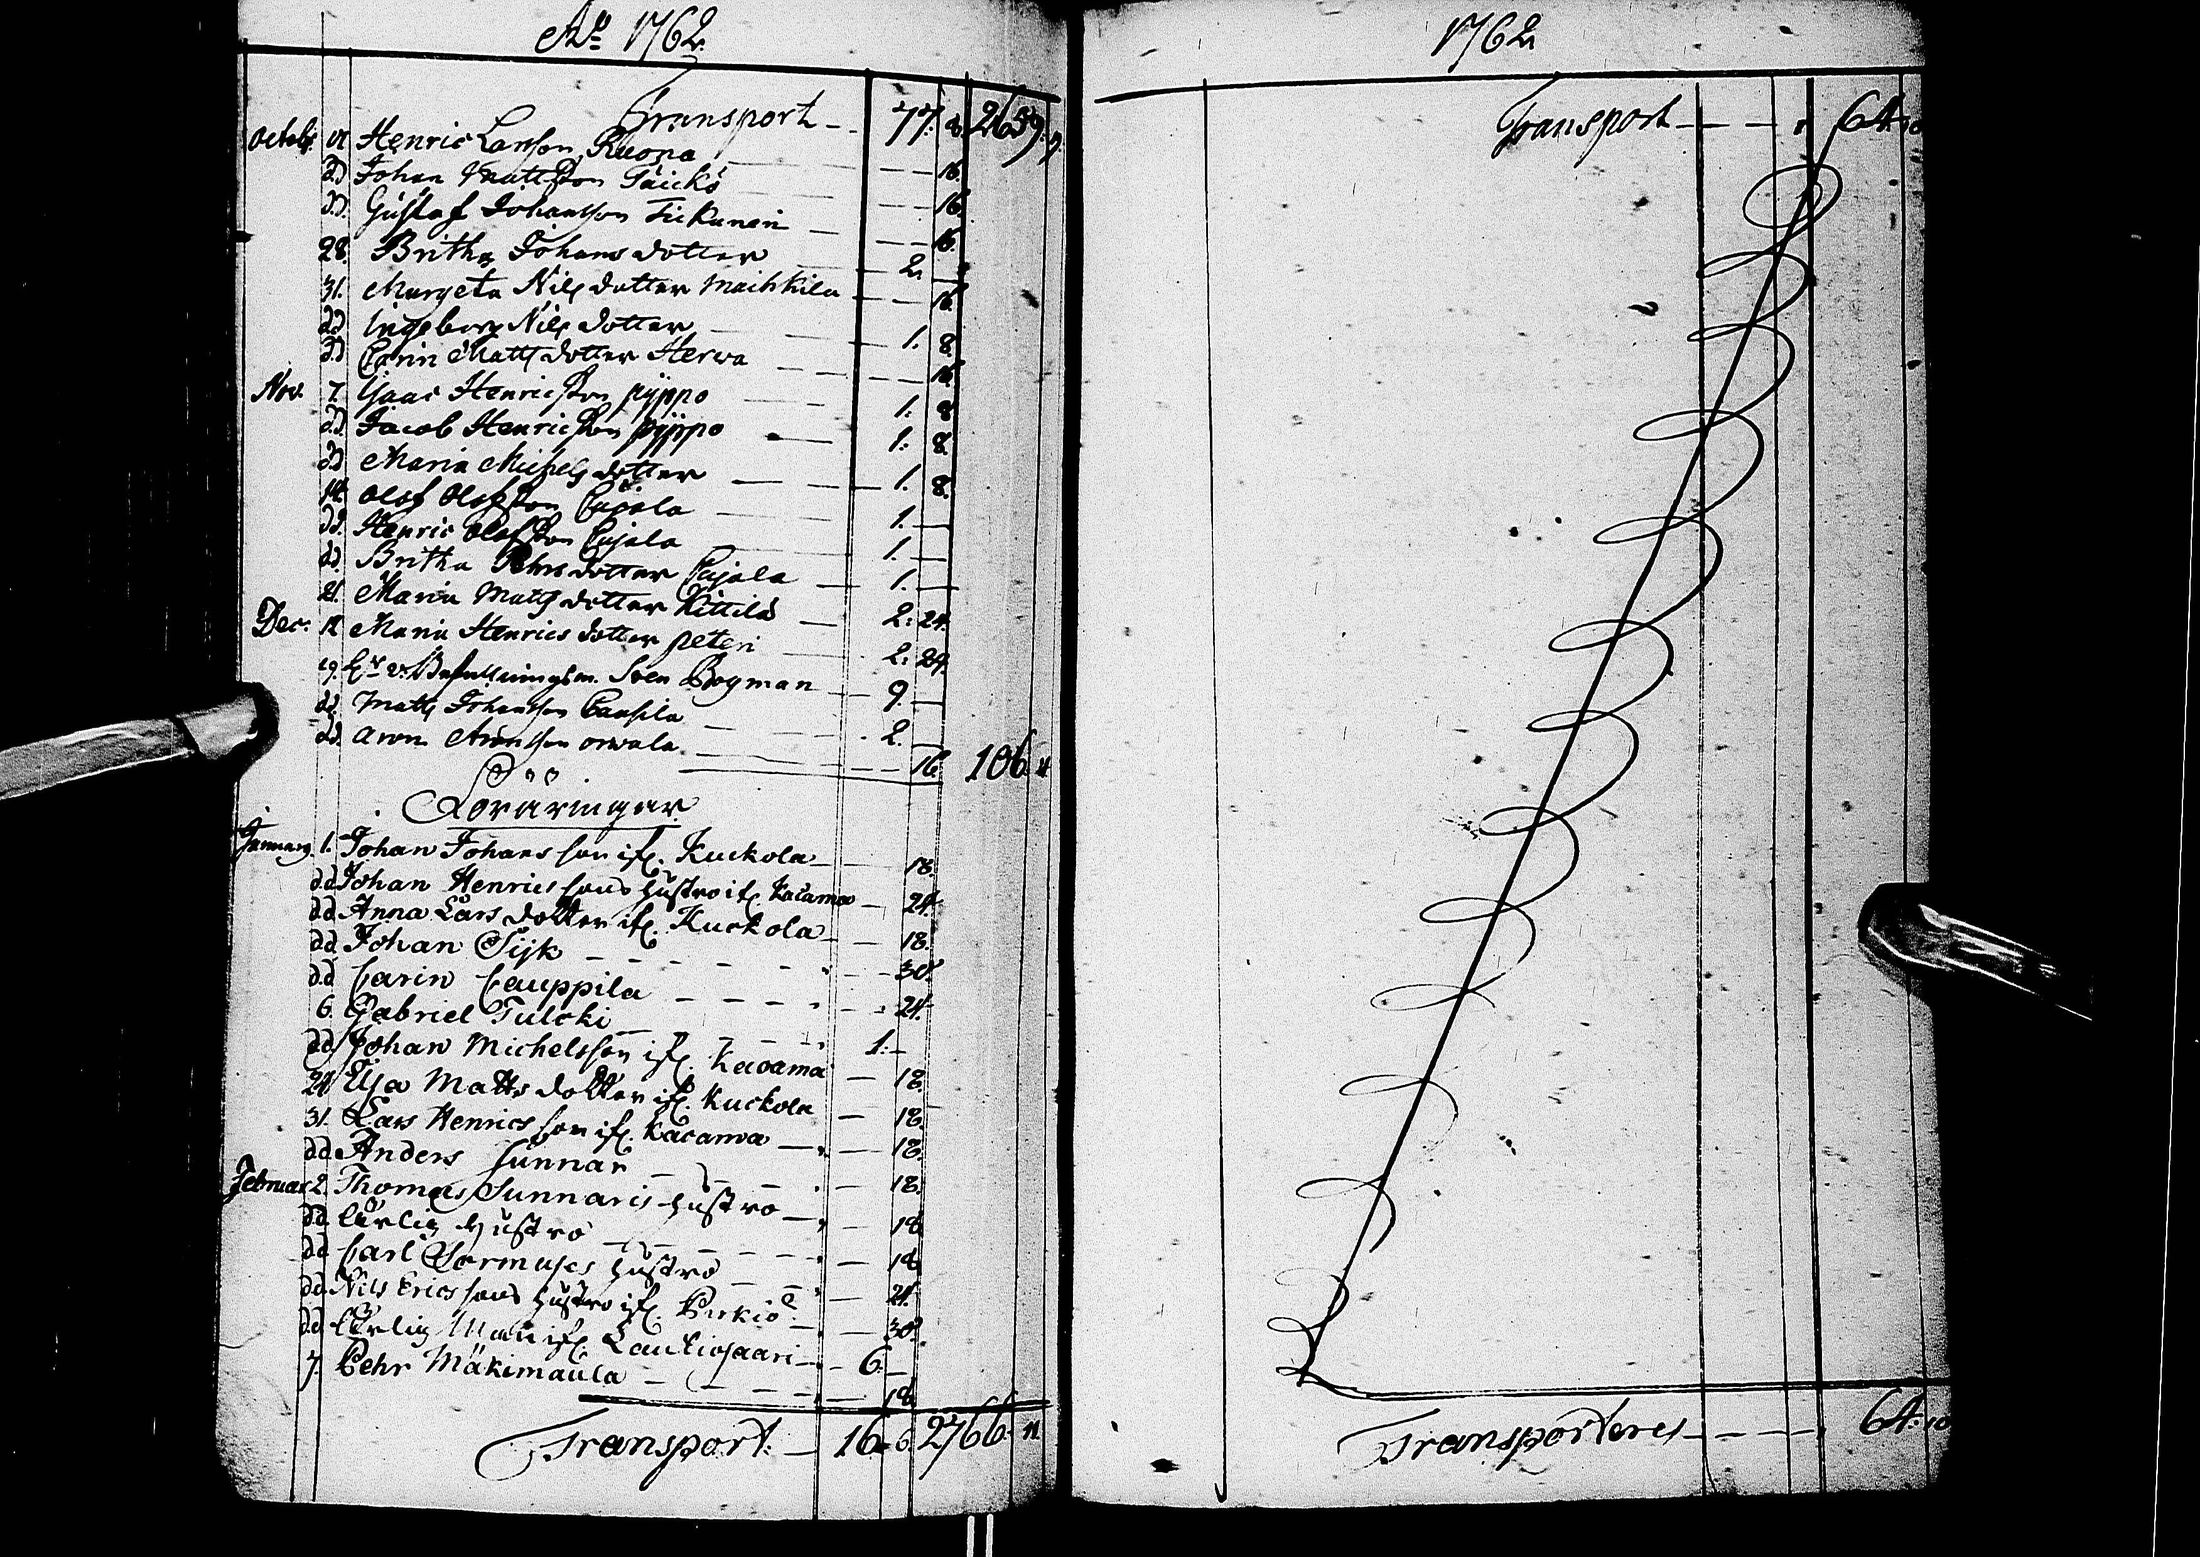 Ao 1762.
Transport 77: 8. 2659: 9
Octobr. Henric Larsson Ruona 16.
dd Johan Mattsson Täickö 16.
dd. Gustaf Johansson Tickanen 16.
28. Britha Johans dotter 2.
31. Margeta Nils dotter Maihkila 16.
dd Ingeborg Nils dotter 1. 8.
dd Carin Matts dotter Herva 16
Nov. 7. Isaac Henricsson pyppo 1: 8
dd Jacob Henricsson pyppo 1: 8.
dd Maria Michels dotter 1. 8.
14. Olof Olofsson Cajala 1.
dd. Henric Olofsson Cajala 1.
dd. Britha Pehrs dotter Cajala 1.
21. Maria Matts dotter Kittilä 2: 24.
Dec. 12 Maria Henrics dotter peteri 2: 24.
19. Sven Bogman 9.
dd. Matts Johansson 2.
dd. Aron Aronsson orwala 16. 106. 11
Löräringar.
January. 1. Johan Johans son if. Kuckola 18.
d.d Johan Henrics sons Hustro if. Kacama 24.
dd Anna Lars dotter if. Kuckola 18.
dd Johan Sijk 30.
d.d Carin Cauppila 24.
6. Gabriel Tulcki 1:
dd Johan Michelsson if. Kacama 18.
24 Elsa Matts dotter if. Kuckola 18.
31. Lars Henrics son if. Kacama 18.
dd Anders Sunnar 18.
Februar 2. Thomas Sunnaris Hustro 18
dd Ehrlig Hustro 18
dd Carl Sormuses Hustro 24.
dd Nils Erics sons Hustro if. Pirkiö 30.
dd Ehrlig Man if. Lautiosaari 6.
7. Pehr Mäkimaula 18
Transport. 16. 6. 2766. 11
1762
Transport 64: 10
Transporteres 64: 10